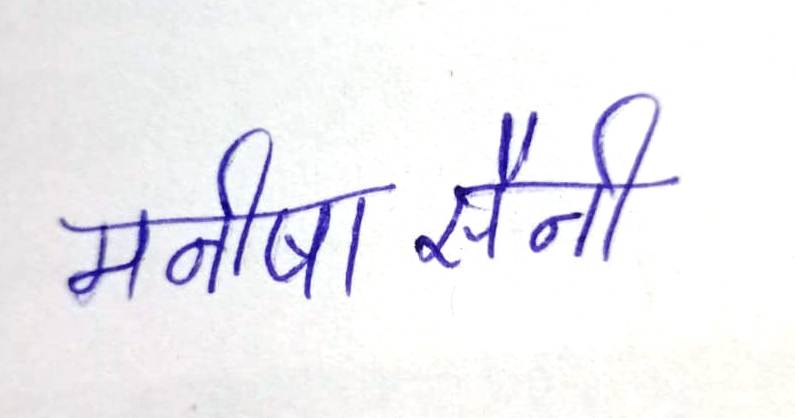 मनीषा सैनी